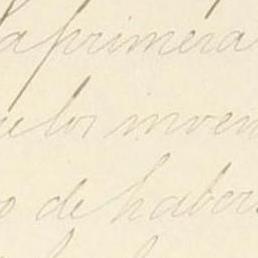 la primera
los inven
o de habers